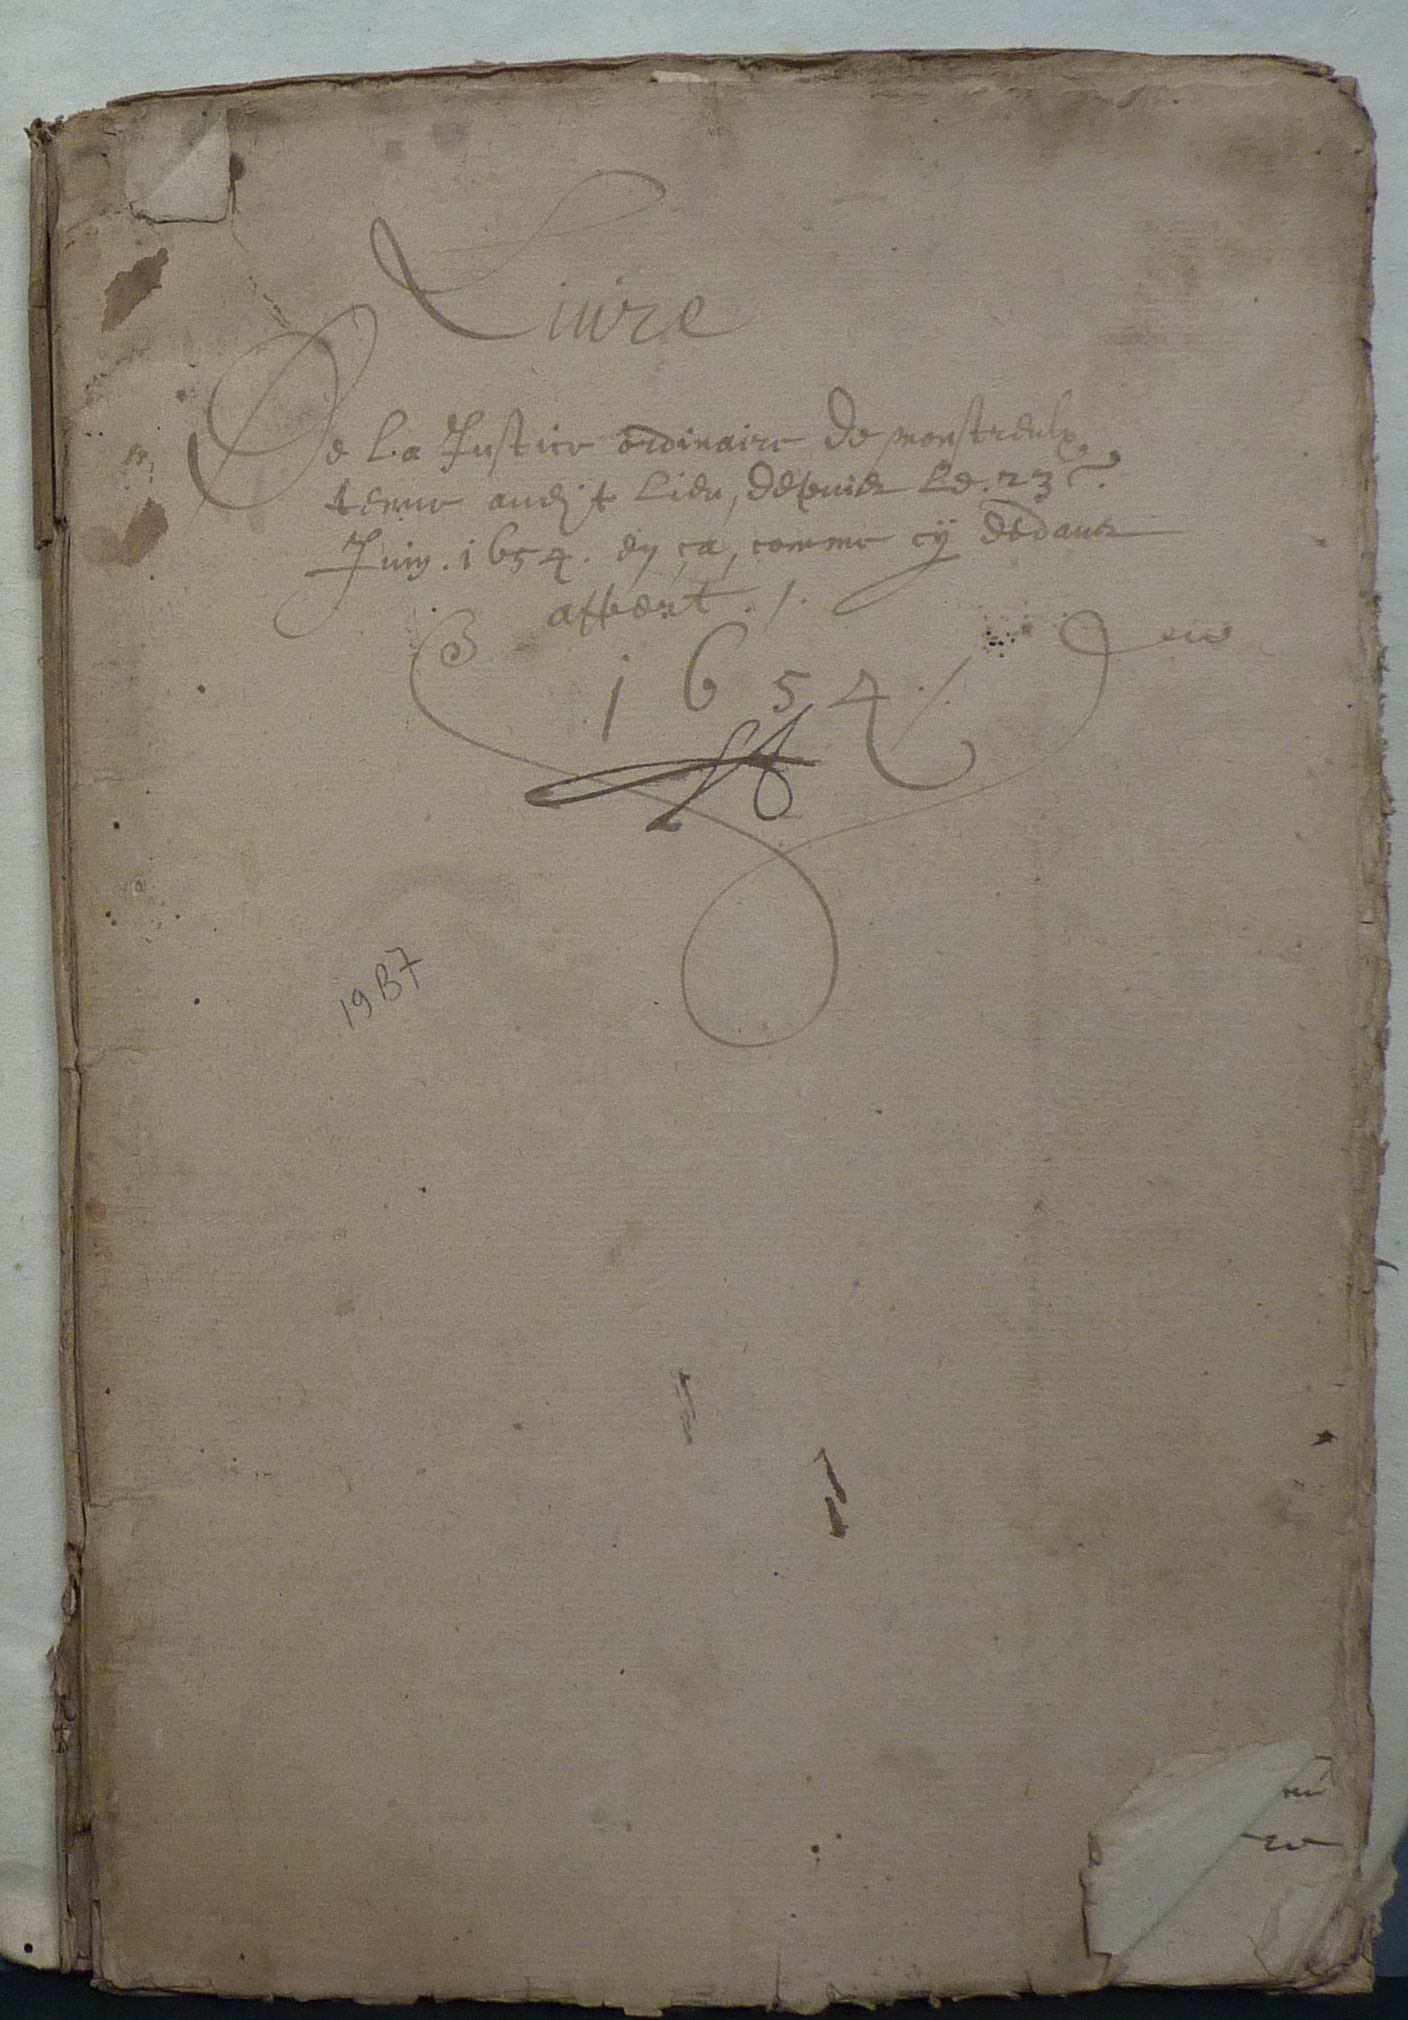 Liure
De La Justice ordinaire de monstreulx
tenue audit Lieu, depuis Le. 23.e
Juin. 1654. en ça, comme cÿ dedans
appert ./.
1654./
19B7